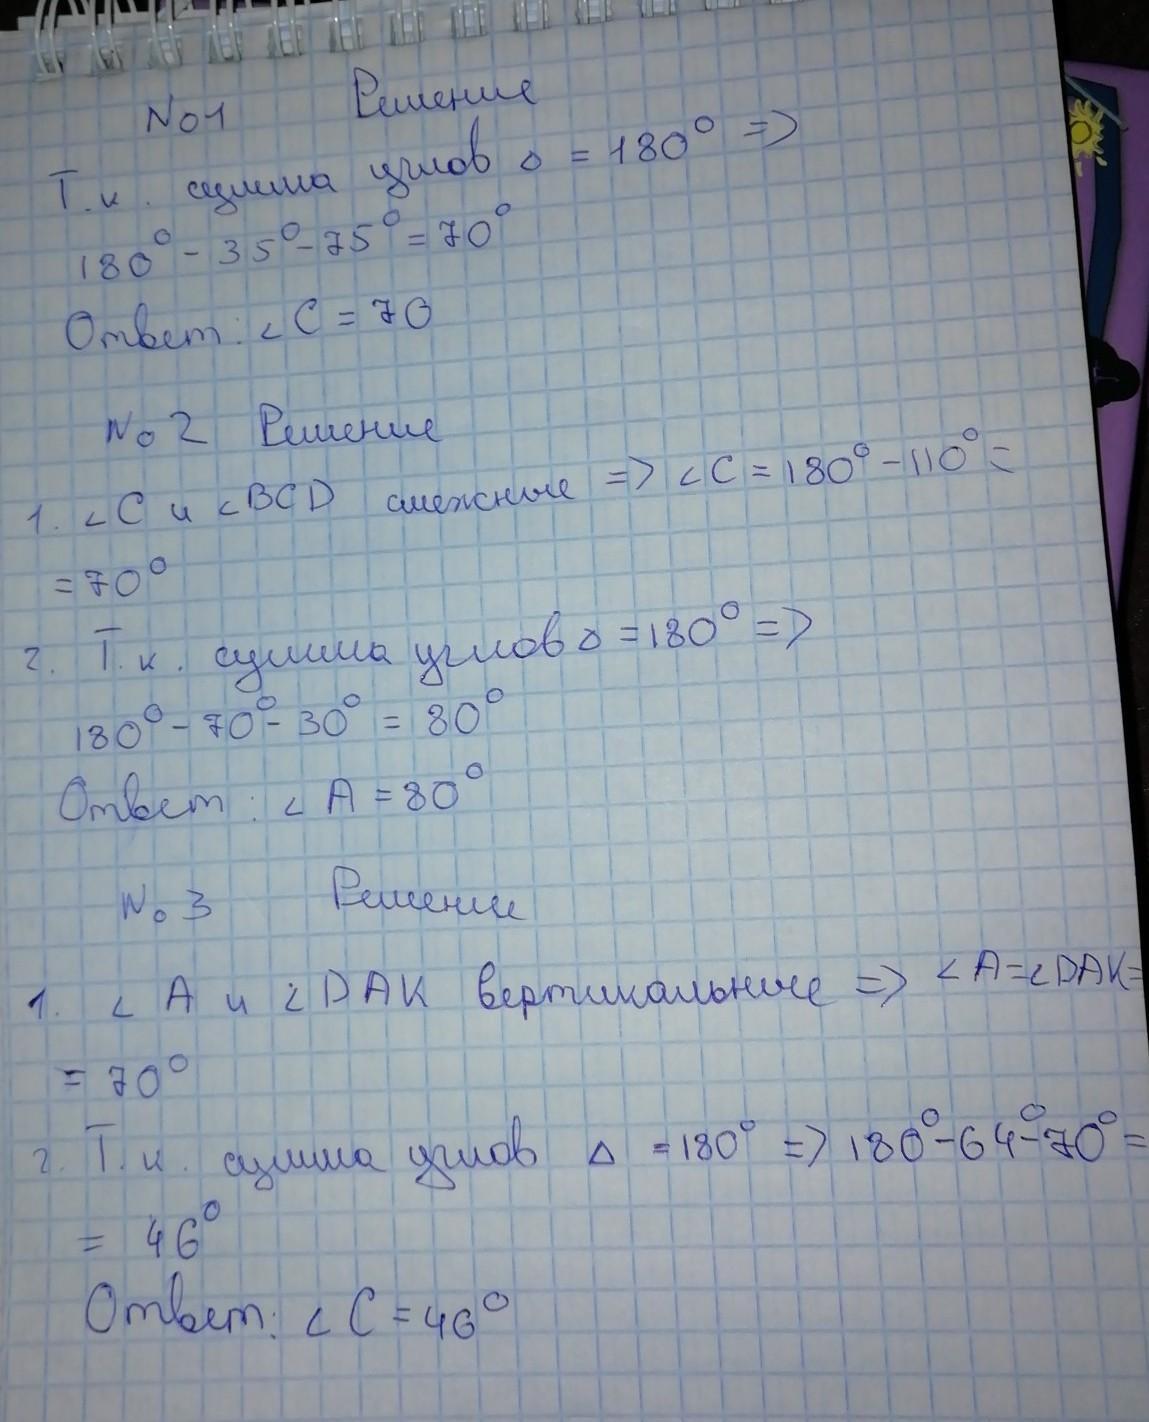 №1 Решение
Т.к. сумма углов △ = 180° =>
180° - 35° - 75° = 70°
Ответ: ∠C = 70
№2 Решение
1. ∠C и ∠BCD смежные => ∠C = 180° - 110° =
= 70°
2. Т.к. сумма углов △ = 180° =>
180° - 70° - 30° = 80°
Ответ: ∠A = 80°
№3 Решение
1. ∠A и ∠DAK вертикальные => ∠A = ∠DAK =
= 70°
2. Т.к. сумма углов △ = 180° => 180° - 64° - 70° =
= 46°
Ответ: ∠C = 46°